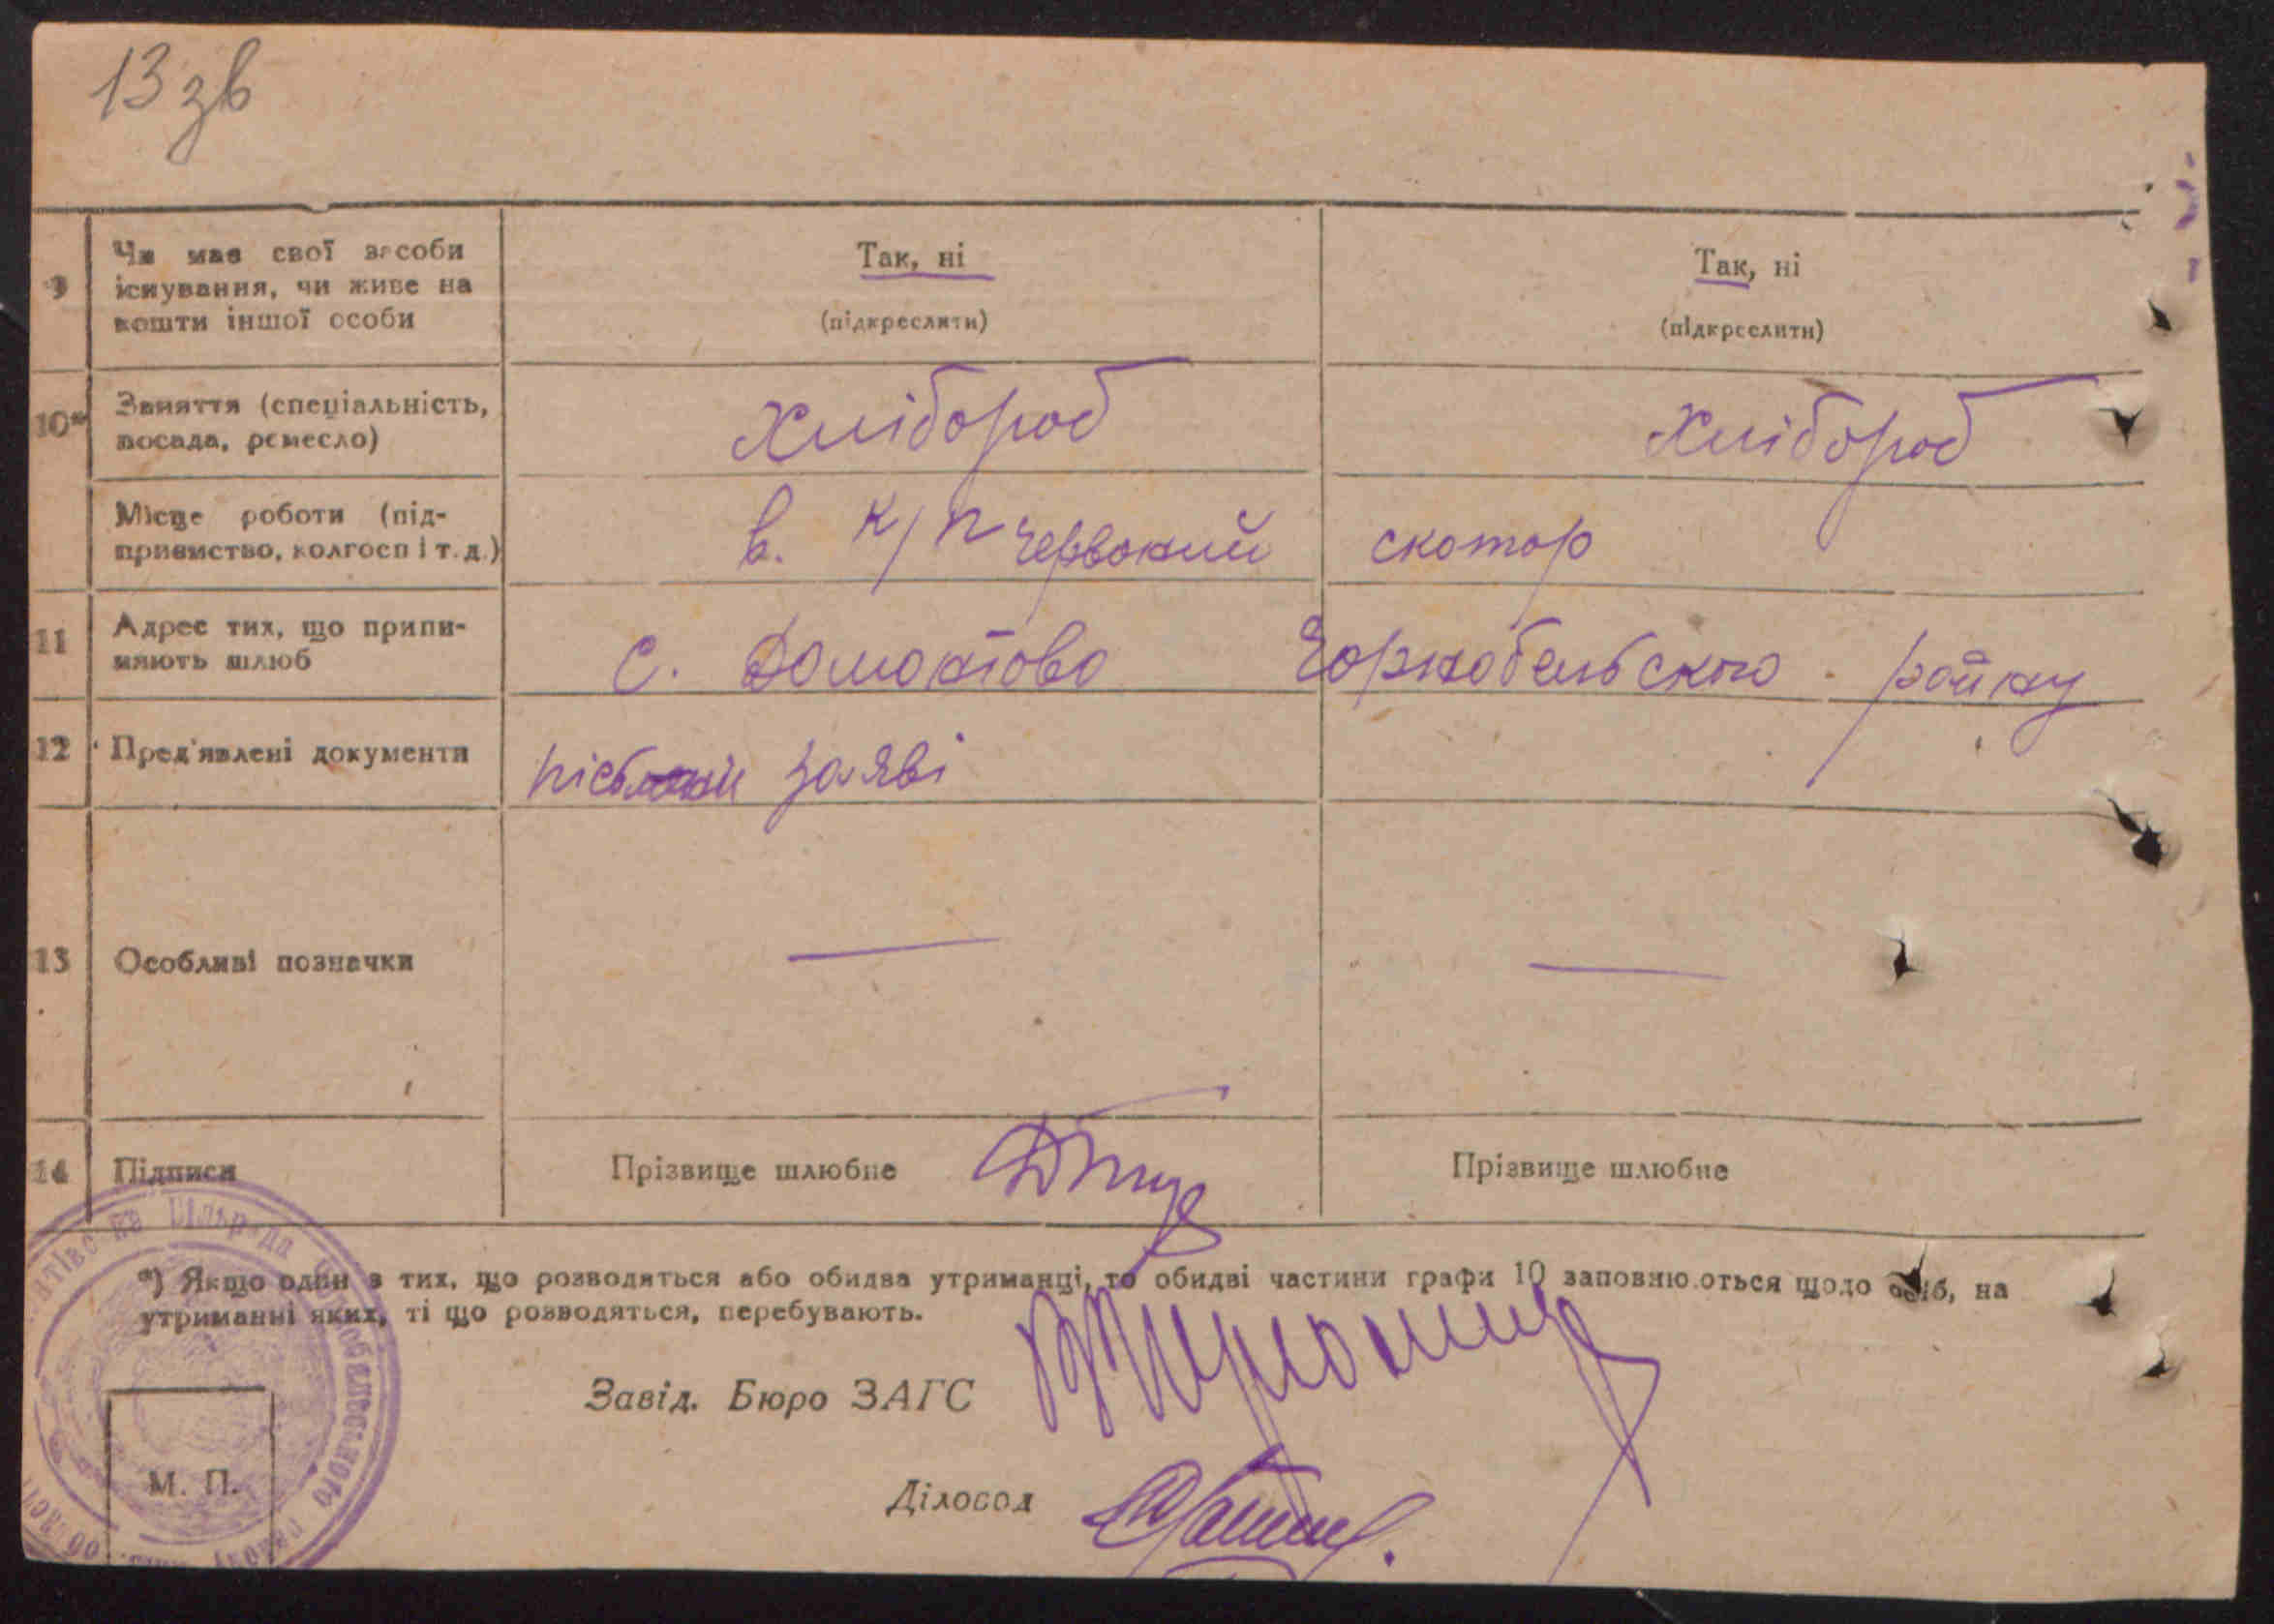 13 зв
9 Чи має свої засоби Так, ні Так, ні
існування, чи живе на
кошти іншої особи (підкреслити) (підкреслити)
10* Заняття (спеціальність, Хлібороб Хлібороб
посада, ремесло)
Місце роботи (під- в. к/п Червоний скотар
приємство, колгосп і т. д.)
11 Адрес тих, що припи- с. Домантово Чорнобельского району
няють шлюб
12 Пред'явлені документи заяві
13 Особливі позначки — —
14 Підписи Прізвище шлюбне Прізвище шлюбне
*) Якщо один з тих, що розводяться або обидва утриманці, то обидві частини графи 10 заповнюються щодо осіб, на
утриманні яких, ті що розводяться, перебувають.
Завід. Бюро ЗАГС
М. П.
Діловод